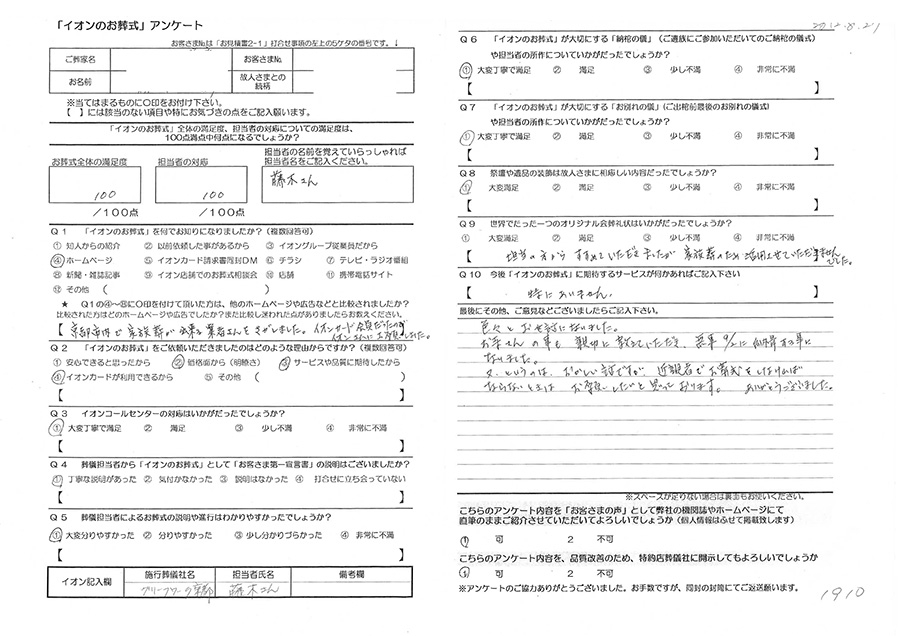 「イオンのお葬式」アンケート
お客さま№は「お見積書2-1」打合せ事項の左上の5ケタの番号です。↓
ご葬家名
お客さま№
お名前
故人さまとの
続柄
※当てはまるものに○印をお付け下さい。
【 】には該当のない項目や特にお気づきの点をご記入願います。
「イオンのお葬式」全体の満足度、担当者の対応についての満足度は、
100点満点中何点になるでしょうか?
お葬式全体の満足度
担当者の対応
担当者の名前を覚えていらっしゃれば
担当者名をご記入ください。
100
100
藤木さん
/100点
/100点
Q1 「イオンのお葬式」を何でお知りになりましたか?(複数回答可)
① 知人からの紹介 ② 以前依頼した事があるから ③ イオングループ従業員だから
④ ホームページ ⑤ イオンカード請求書同封DM ⑥ チラシ ⑦ テレビ・ラジオ番組
⑧ 新聞・雑誌記事 ⑨ イオン店舗でのお葬式相談会 ⑩ 店舗 ⑪ 携帯電話サイト
⑫ その他 ( )
★ Q1の④~⑧に○印を付けて頂いた方は、他のホームページや広告などと比較されましたか?
比較された方はどのホームページや広告でしたか?また比較し迷われた点がありましたらお教えください。
【 京都市内で家族葬が出来る業者さんをさがしました。イオンカード会員だったので
イオンさんにお願いしました。
Q2 「イオンのお葬式」をご依頼いただきましたのはどのような理由からですか?(複数回答可)
① 安心できると思ったから ② 価格面から(明瞭さ) ③ サービスや品質に期待したから
④ イオンカードが利用できるから ⑤ その他 ( )
【 】
Q3 イオンコールセンターの対応はいかがだったでしょうか?
① 大変丁寧で満足 ② 満足 ③ 少し不満 ④ 非常に不満
【 】
Q4 葬儀担当者から「イオンのお葬式」として「お客さま第一宣言書」の説明はございましたか?
① 丁寧な説明があった ② 気付かなかった ③ 説明はなかった ④ 打合せに立ち会っていない
【 】
Q5 葬儀担当者によるお葬式の説明や進行はわかりやすかったでしょうか?
① 大変分りやすかった ② 分りやすかった ③ 少し分かりづらかった ④ 非常に不満
【 】
イオン記入欄
施行葬儀社名
担当者氏名
備考欄
藤木さん
2012.8.21
Q6 「イオンのお葬式」が大切にする「納棺の儀」(ご遺族にご参加いただいてのご納棺の儀式)
や担当者の所作についていかがだったでしょうか?
① 大変丁寧で満足 ② 満足 ③ 少し不満 ④ 非常に不満
【 】
Q7 「イオンのお葬式」が大切にする「お別れの儀」(ご出棺前最後のお別れの儀式)
や担当者の所作についていかがだったでしょうか?
① 大変丁寧で満足 ② 満足 ③ 少し不満 ④ 非常に不満
【 】
Q8 祭壇や遺品の装飾は故人さまに相応しい内容だったでしょうか?
① 大変満足 ② 満足 ③ 少し不満 ④ 非常に不満
【 】
Q9 世界でたった一つのオリジナル会葬礼状はいかがだったでしょうか?
① 大変満足 ② 満足 ③ 少し不満 ④ 非常に不満
【 担当の方からすすめていただきましたが家族葬のため活用させていただきませんでした。
Q10 今後「イオンのお葬式」に期待するサービスが何かあればご記入下さい
【 特にありません。 】
最後にその他、ご意見などございましたらご記入下さい。
色々とお世話になりました。
お寺さんの事も親切に教えていただき、
なりました。
又、というのは、おかしい話ですが、近親者でお葬式をしなければ
ならないときは お願いしたいと思っております。ありがとうございました。
※スペースが足りない場合は裏面もお使いください。
こちらのアンケート内容を「お客さまの声」として弊社の機関誌やホームページにて
直筆のままご紹介させていただいてよろしいでしょうか(個人情報はふせて掲載致します)
1 可 2 不可
こちらのアンケート内容を、品質改善のため、特約店葬儀社に開示してもよろしいでしょうか
1 可 2 不可
※アンケートのご協力ありがとうございました。お手数ですが、同封の封筒にてご返送願います。
1910